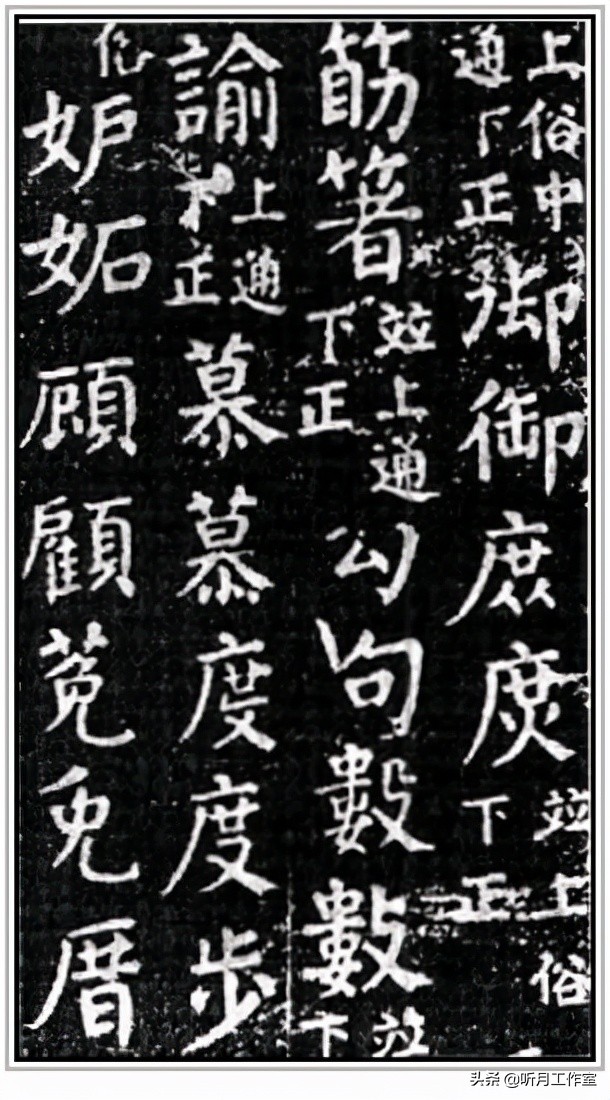 上俗中通下正御御庻庶並上俗下正
筯箸並上通下正勾句數數並下
諭上通下正慕慕度度步
妒妬頋顧菟兔厝
头条 @听月工作室